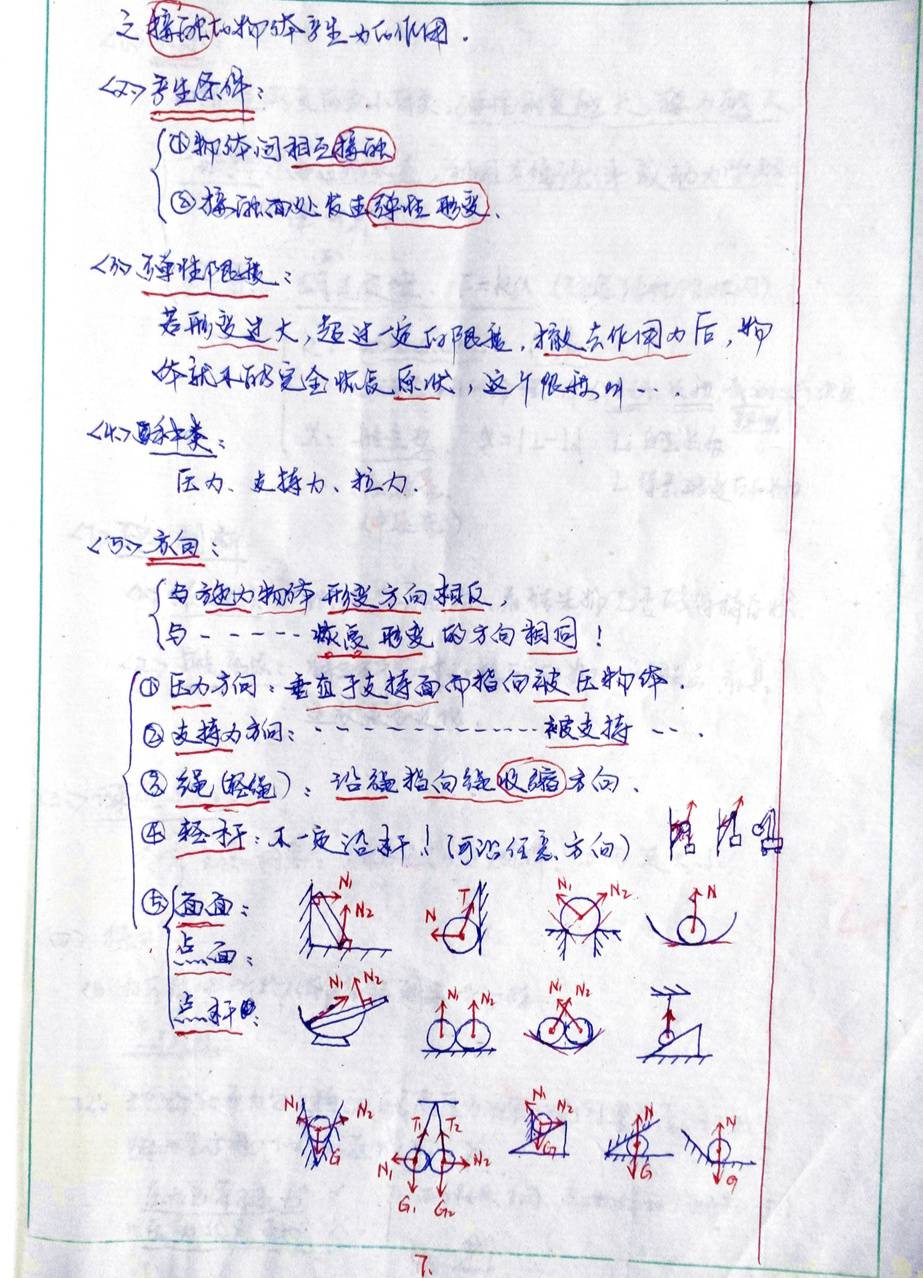 之接触的物体产生力的作用.
<2>产生条件:
①物体间相互接触
②接触面处发生弹性形变.
<3>弹性限度:
若形变过大,超过一定的限度,撤去作用力后,物
体就不能完全恢复原状,这个限度叫--.
<4>种类:
压力、支持力、拉力.
<5>方向:
与施力物体形变方向相反,
与-----恢复形变的方向相同!
①压力方向:垂直于支持面而指向被压物体.
②支持力方向:------------被支持--.
③绳(轻绳):沿绳指向绳收缩方向.
④轻杆:不一定沿杆!(可沿任意方向)
⑤面面: N1 N2 N T N1 N2 N
点面:
点杆: N1 N2 N1 N2 N1 N2
N1 N2 G T1 T2 N1 N2 G1 G2 N1 N2 G N G N G
7.